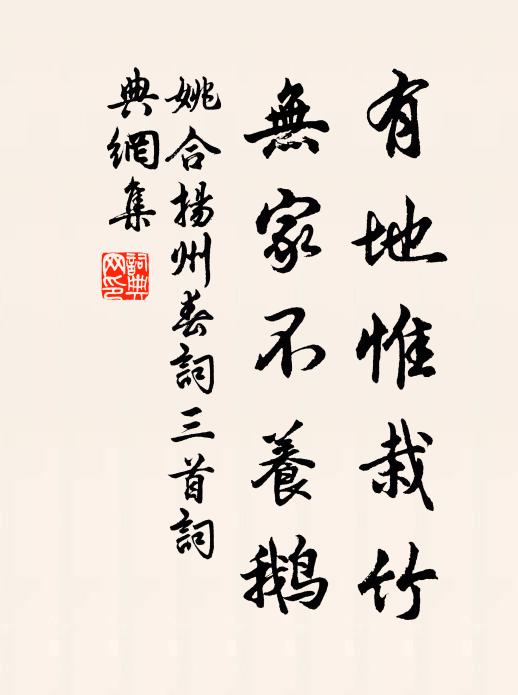 有地惟栽竹
無家不養鵝
姚合揚州春詞三首詞
典網集
詞典網印